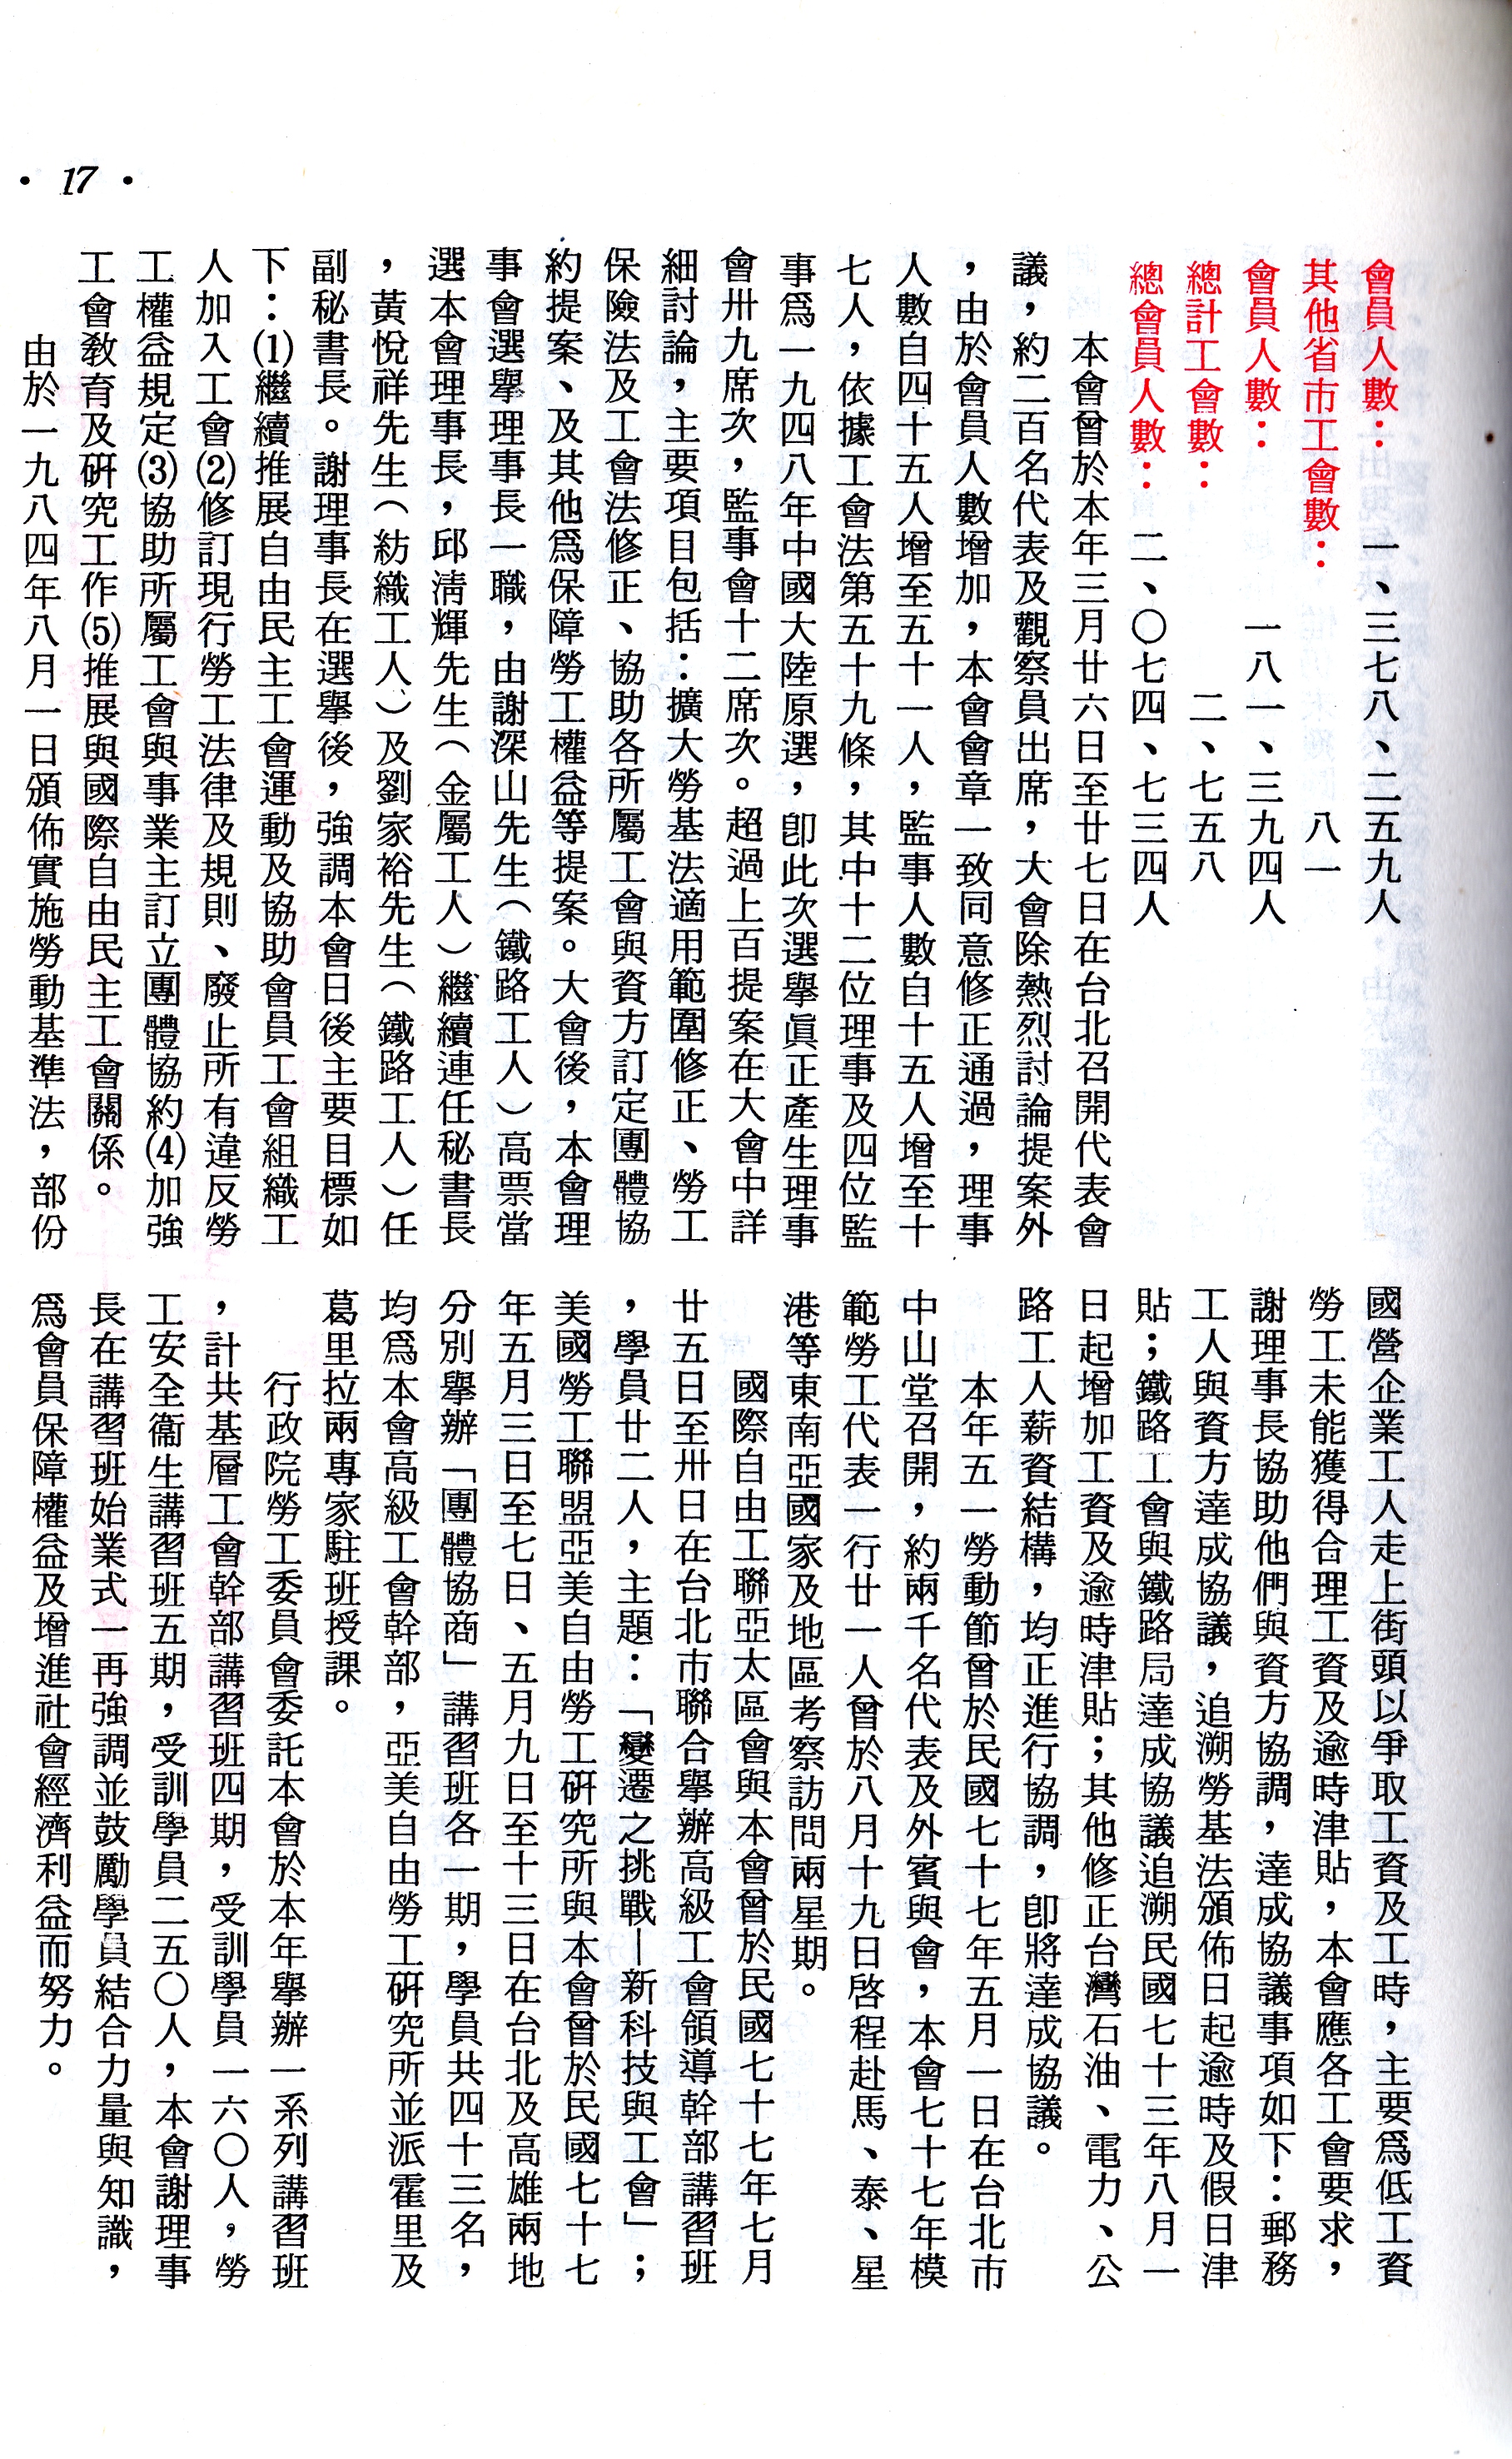 會員人數：　一、三七八、二五九人
其他省市工會數：　八一
會員人數：　一八一、三九四人
總計工會數：　二、七五八
總會員人數：　二、〇七四、七三四人
本會曾於本年三月廿六日至廿七日在台北召開代表會
議，約二百名代表及觀察員出席，大會除熱烈討論提案外
，由於會員人數增加，本會會章一致同意修正通過，理事
人數自四十五人增至五十一人，監事人數自十五人增至十
七人，依據工會法第五十九條，其中十二位理事及四位監
事爲一九四八年中國大陸原選，卽此次選擧眞正產生理事
會卅九席次，監事會十二席次。超過上百提案在大會中詳
細討論，主要項目包括：擴大勞基法適用範圍修正、勞工
保險法及工會法修正、協助各所屬工會與資方訂定團體協
約提案、及其他爲保障勞工權益等提案。大會後，本會理
事會選擧理事長一職，由謝深山先生（鐵路工人）高票當
選本會理事長，邱淸輝先生（金屬工人）繼續連任秘書長
，黃悅祥先生（紡織工人）及劉家裕先生（鐵路工人）任
副秘書長。謝理事長在選擧後，強調本會日後主要目標如
下：(1)繼續推展自由民主工會運動及協助會員工會組織工
人加入工會(2)修訂現行勞工法律及規則、廢止所有違反勞
工權益規定(3)協助所屬工會與事業主訂立團體協約(4)加強
工會敎育及硏究工作(5)推展與國際自由民主工會關係。
由於一九八四年八月一日頒佈實施勞動基準法，部份
國營企業工人走上街頭以爭取工資及工時，主要爲低工資
勞工未能獲得合理工資及逾時津貼，本會應各工會要求，
謝理事長協助他們與資方協調，達成協議事項如下：郵務
工人與資方達成協議，追溯勞基法頒佈日起逾時及假日津
貼；鐵路工會與鐵路局達成協議追溯民國七十三年八月一
日起增加工資及逾時津貼；其他修正台灣石油、電力、公
路工人薪資結構，均正進行協調，卽將達成協議。
本年五一勞動節曾於民國七十七年五月一日在台北市
中山堂召開，約兩千名代表及外賓與會，本會七十七年模
範勞工代表一行廿一人曾於八月十九日啓程赴馬、泰、星
港等東南亞國家及地區考察訪問兩星期。
國際自由工聯亞太區會與本會曾於民國七十七年七月
廿五日至卅日在台北市聯合擧辦高級工會領導幹部講習班
，學員廿二人，主題：「變遷之挑戰—新科技與工會」；
美國勞工聯盟亞美自由勞工硏究所與本會曾於民國七十七
年五月三日至七日、五月九日至十三日在台北及高雄兩地
分別擧辦「團體協商」講習班各一期，學員共四十三名，
均爲本會高級工會幹部，亞美自由勞工硏究所並派霍里及
葛里拉兩專家駐班授課。
行政院勞工委員會委託本會於本年擧辦一系列講習班
，計共基層工會幹部講習班四期，受訓學員一六〇人，勞
工安全衞生講習班五期，受訓學員二五〇人，本會謝理事
長在講習班始業式一再強調並鼓勵學員結合力量與知識，
爲會員保障權益及增進社會經濟利益而努力。
• 17 •